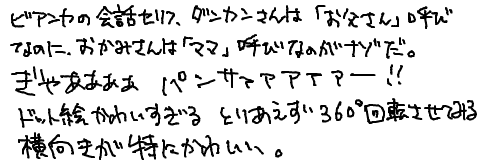 ビアンカの会話セリフ、ダンカンさんは「お父さん」呼び
なのに、おかみさんは「ママ」呼びなのがナゾだ。
ぎゃああああ パンサァァアァァー!!
ドット絵かわいすぎる とりあえず360°回転させてみる
横向きが特にかわいい。